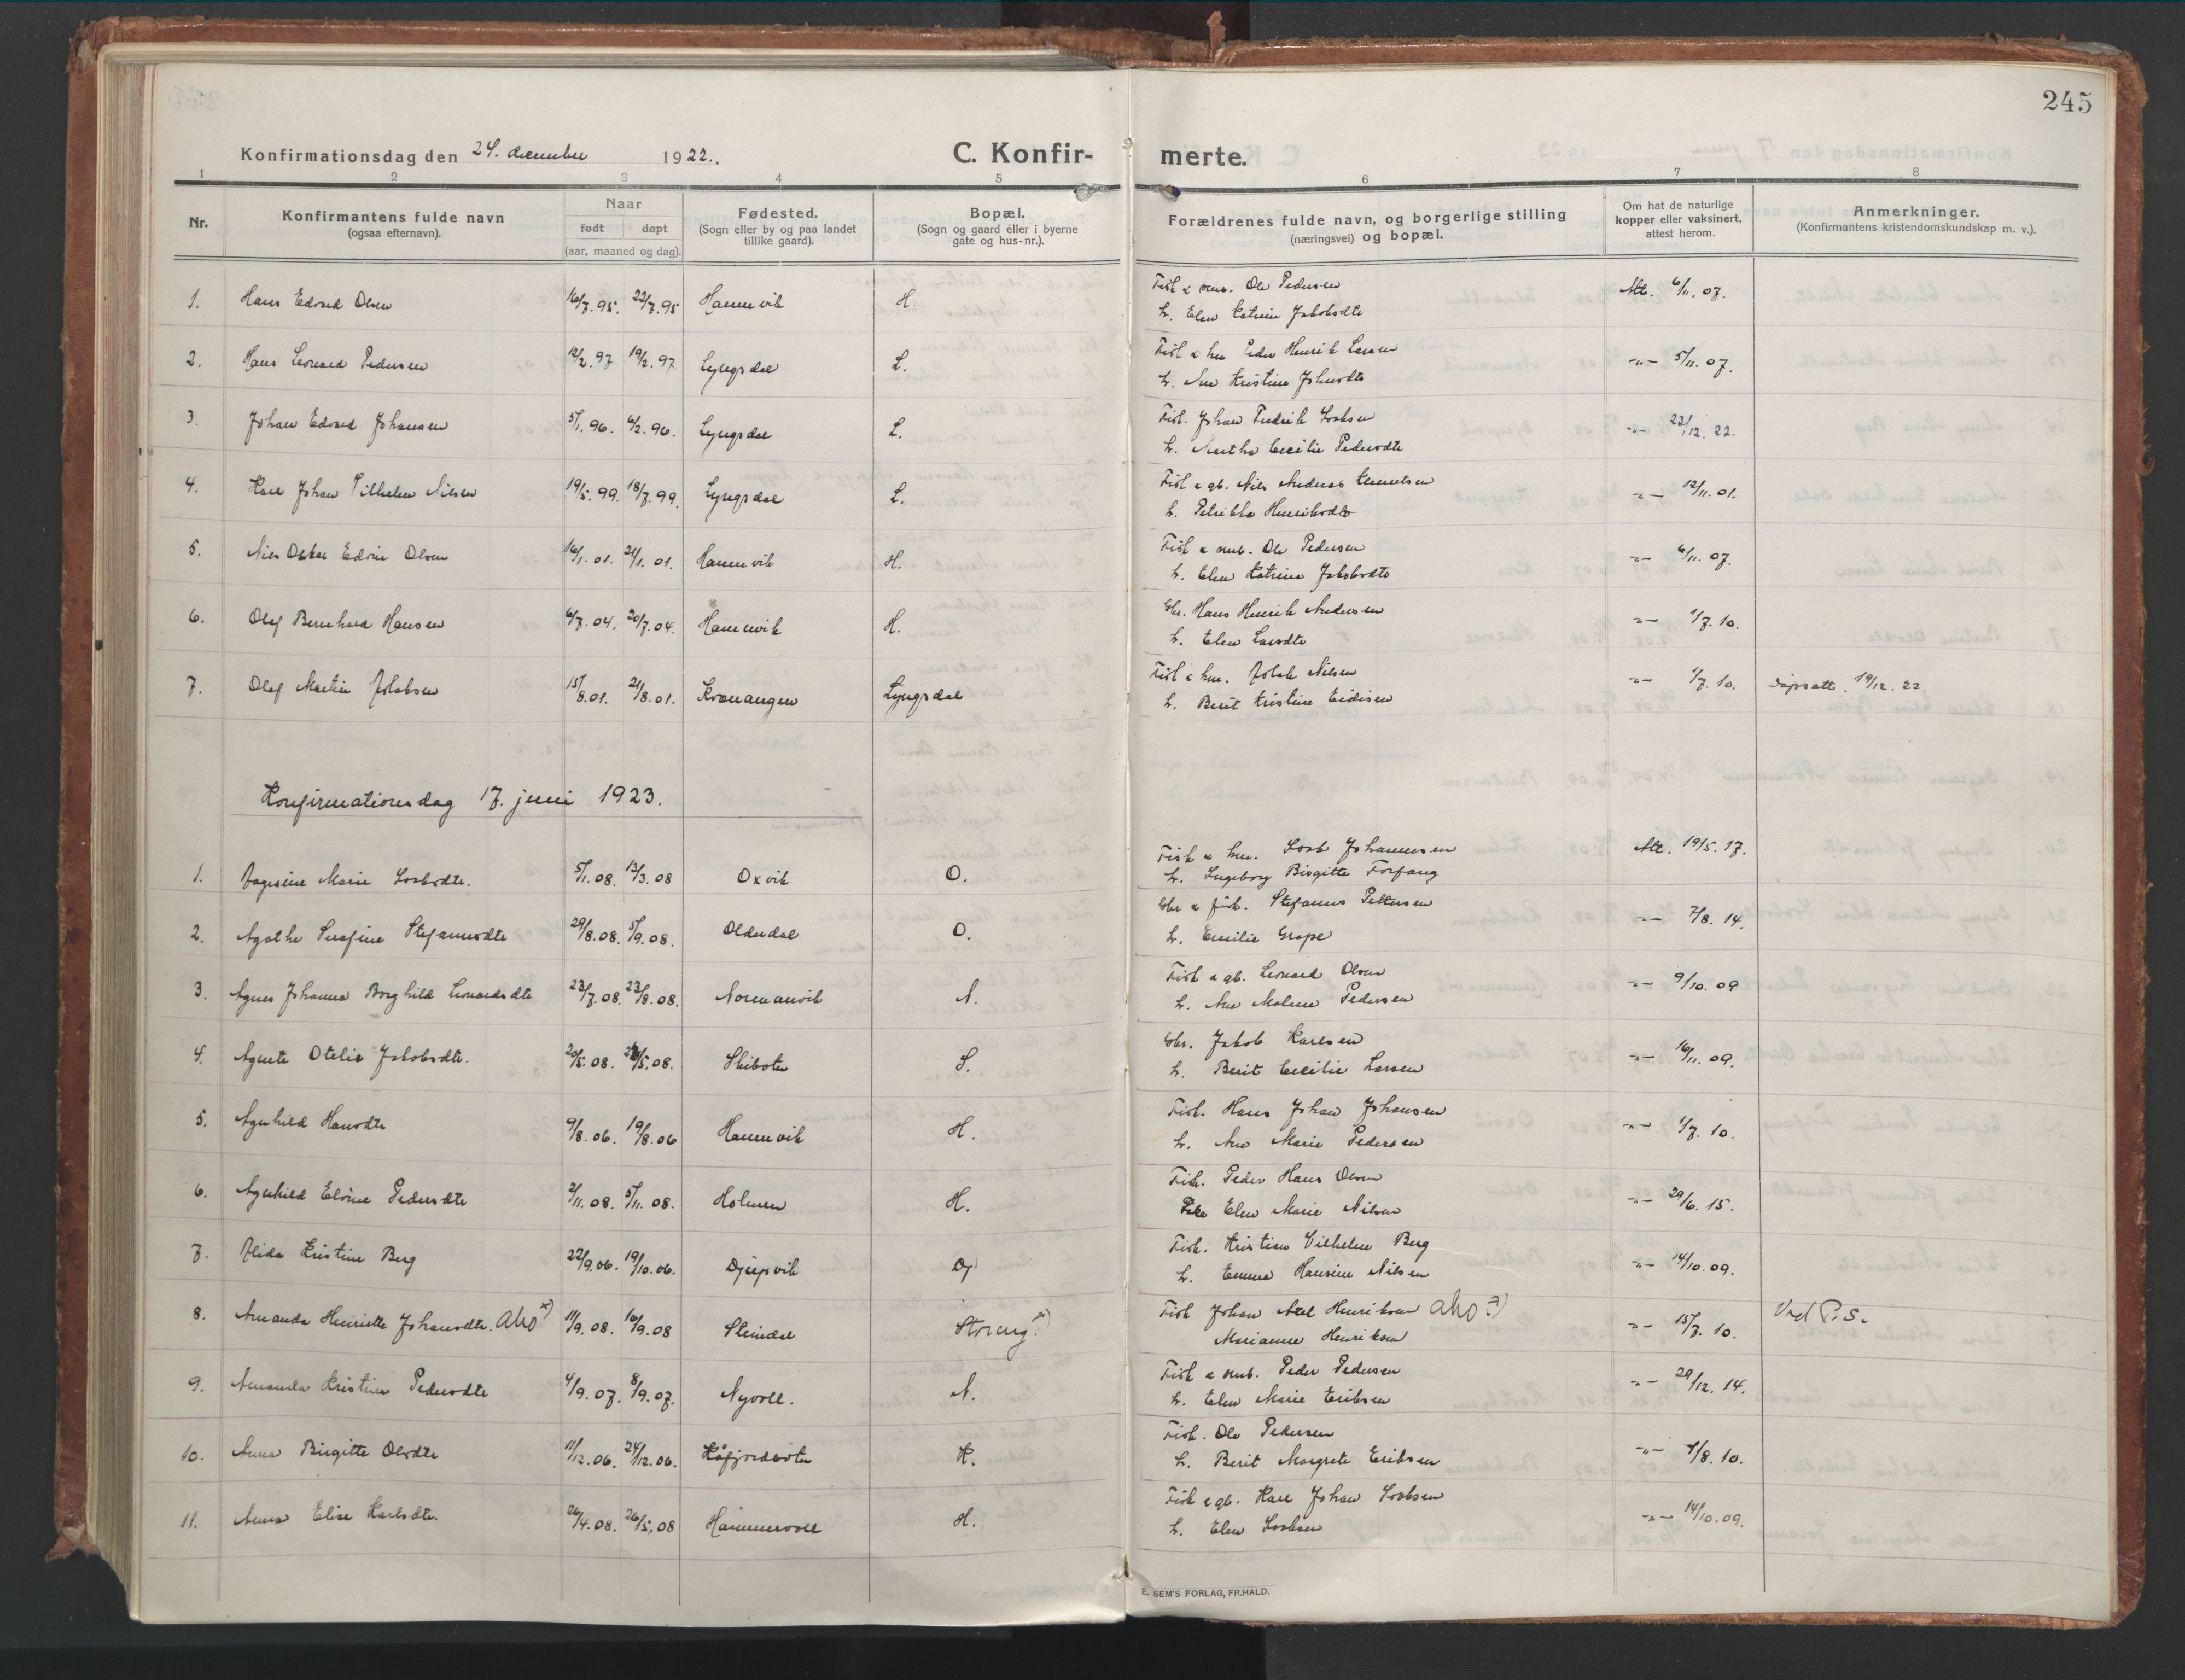 245
Konfirmationsdag den 24. december 1922.
C. Konfirmerte.
1 2 3 4 5 6 7 8
Nr.
Konfirmantens fulde navn
(ogsaa efternavn).
Naar
født døpt
(aar, maaned og dag).
Fødested.
(Sogn eller by og paa landet
tillike gaard).
Bopæl.
(Sogn og gaard eller i byerne
gate og hus-nr.).
Forældrenes fulde navn, og borgerlige stilling
(næringsvei) og bopæl.
Om hat de naturlige
kopper eller vaksinert,
attest herom.
Anmerkninger.
(Konfirmantens kristendomskundskap m. v.).
1. Hans Edvard Olsen 16/7.95. 22/7.95 Hamnvik H. Fisk & smb. Ole Pedersen Att. 6/11.07.
h. Elen Katrine Jakobsdtr
2. Hans Leonard Pedersen 12/2.97 19/2.97 Lyngsdal L. Fisk & hm Peder Henrik Larsen -"- 5/11.07.
h. Ane Kristine Johnsdtr
3. Johan Edvard Johansen 5/1.96. 6/2.96. Lyngsdal L. Fisk. Johan Fredrik Isaksen -"- 23/12.22.
h. Martha Cecilie Pedersdtr
4. Karl Johan Vilhelm Nilsen 19/5.99. 18/7.99. Lyngsdal L. Fisk & gb. Nils Andreas Klemetsen -"- 12/11.01.
h. Petrikka Henriksdtr
5. Nils Oskar Edvin Olsen 16/1.01. 21/1.01. Hamnvik H. Fisk & smb. Ole Pedersen -"- 6/11.07.
h. Elen Katrine Jakobsdtr
6. Olaf Bernhard Hansen 6/7.04. 20/7.04. Hamnvik H. Gbr. Hans Henrik Andersen -"- 1/7.10.
h. Elen Larsdtr
7. Olaf Martin Jakobsen 15/8.01. 21/8.01. Kvænangen Lyngsdal Fisk & hm. Jakob Nilsen -"- 1/7.10. Dåpsatt. 19/12.22.
h. Berit Kristine Eidisen
Konfirmationsdag 17. juni 1923.
1. Dagesine Marie Isaksdtr. 5/1.08. 13/3.08 Oxvik O. Fisk & hm. Isak Johannesen Att. 19/5.17.
h. Ingeborg Birgitte Forfang
2. Agathe Serafine Stefanusdtr 29/8.08. 5/9.08. Olderdal O. Gbr & fisk. Stefanus Pettersen -"- 7/8.14.
h. Emilie Grape
3. Agnes Johanna Borghild Leonardsdtr 23/7.08. 23/8.08. Normanvik N. Fisk & gb. Leonard Olsen -"- 9/10.09
h. Ane Malene Pedersen
4. Agnete Otelie Jakobsdtr. 20/5.08. /5.08. Skibotn S. Gbr. Jakob Karlsen -"- 16/11.09.
h. Berit Cecilie Larsen
5. Agnhild Hansdtr 9/8.06. 19/8.06 Hamnvik H. Fisk. Hans Johan Johansen -"- 1/7.10.
h. Ane Marie Pedersen
6. Agnhild Elvine Pedersdtr 2/11.08. 5/11.08. Holmen H. Fisk. Peder Hans Olsen -"- 29/6.15.
Elen Marie Nilsen
7. Alida Kristine Berg 22/9.06. 19/10.06. Djupvik Dj Fisk. Kristian Vilhelm Berg -"- 14/10.09.
h. Emma Hansine Nilsen
8. Amanda Henriette Johansdtr. Aho x) 11/9.08. 16/9.08 Steindal Storeng x) Fisk Johan Axel Henriksen Aho x) -"- 15/7.10. Ved P.S.
Marianne Henriksen
9. Amanda Kristine Pedersdtr 4/9.07. 8/9.07. Nyvoll. N. Fisk & smb. Peder Pedersen -"- 29/12.14.
h. Elen Marie Eriksen
10. Anna Birgitte Olsdtr 11/12.06. 24/12.06. Kåfjordbotn K. Fisk. Ole Pedersen -"- 4/8.10.
h. Berit Margrete Eriksen
11. Anna Elise Karlsdtr. 26/4.08. 26/5.08 Hammervoll H. Fisk & gb. Karl Johan Isaksen -"- 14/10.09.
h. Elen Isaksen
E. SEM'S FORLAG, FR.HALD.